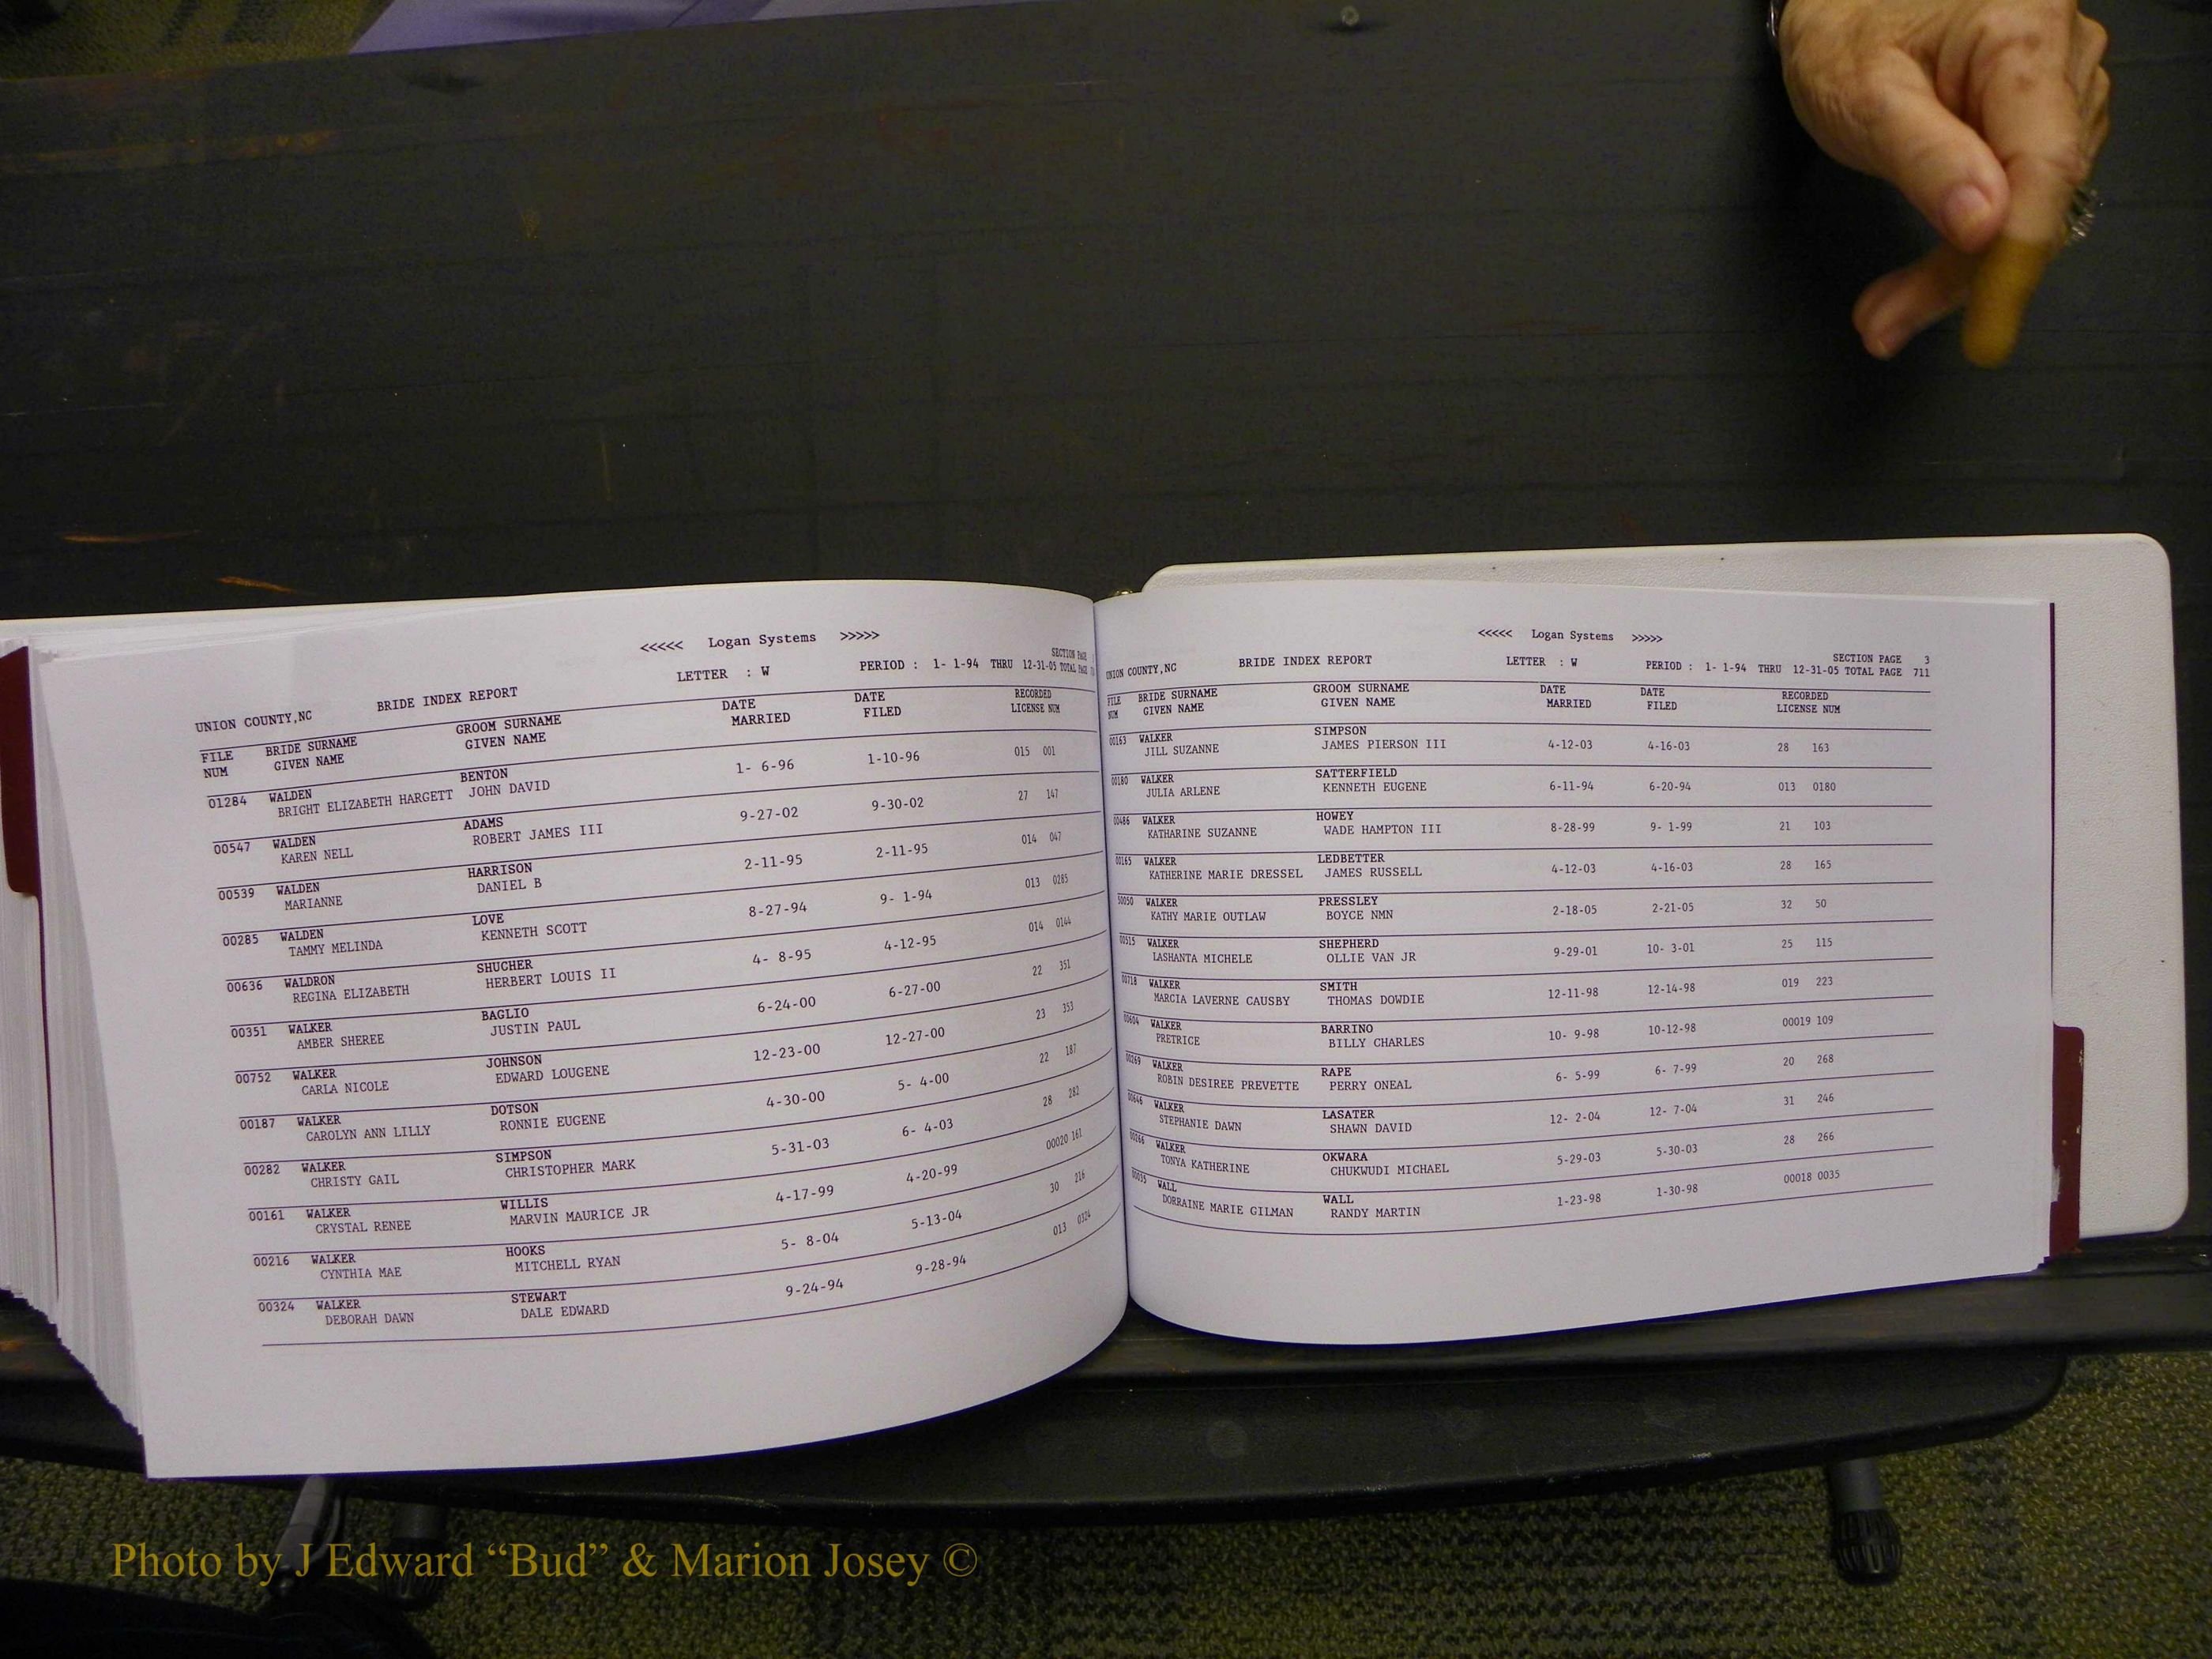 <<<<< Logan Systems >>>>>
SECTION PAGE
UNION COUNTY,NC BRIDE INDEX REPORT LETTER : W PERIOD : 1- 1-94 THRU 12-31-05 TOTAL PAGE
FILE BRIDE SURNAME GROOM SURNAME DATE DATE RECORDED
NUM GIVEN NAME GIVEN NAME MARRIED FILED LICENSE NUM
01284 WALDEN BENTON 1- 6-96 1-10-96 015 001
BRIGHT ELIZABETH HARGETT JOHN DAVID
00547 WALDEN ADAMS 9-27-02 9-30-02 27 147
KAREN NELL ROBERT JAMES III
00539 WALDEN HARRISON 2-11-95 2-11-95 014 047
MARIANNE DANIEL B
00285 WALDEN LOVE 8-27-94 9- 1-94 013 0285
TAMMY MELINDA KENNETH SCOTT
00636 WALDRON SHUCHER 4- 8-95 4-12-95 014 0144
REGINA ELIZABETH HERBERT LOUIS II
00351 WALKER BAGLIO 6-24-00 6-27-00 22 351
AMBER SHEREE JUSTIN PAUL
00752 WALKER JOHNSON 12-23-00 12-27-00 23 353
CARLA NICOLE EDWARD LOUGENE
00187 WALKER DOTSON 4-30-00 5- 4-00 22 187
CAROLYN ANN LILLY RONNIE EUGENE
00282 WALKER SIMPSON 5-31-03 6- 4-03 28 282
CHRISTY GAIL CHRISTOPHER MARK
00161 WALKER WILLIS 4-17-99 4-20-99 00020 161
CRYSTAL RENEE MARVIN MAURICE JR
00216 WALKER HOOKS 5- 8-04 5-13-04 30 216
CYNTHIA MAE MITCHELL RYAN
00324 WALKER STEWART 9-24-94 9-28-94 013 0324
DEBORAH DAWN DALE EDWARD
<<<<< Logan Systems >>>>>
SECTION PAGE 3
UNION COUNTY,NC BRIDE INDEX REPORT LETTER : W PERIOD : 1- 1-94 THRU 12-31-05 TOTAL PAGE 711
FILE BRIDE SURNAME GROOM SURNAME DATE DATE RECORDED
NUM GIVEN NAME GIVEN NAME MARRIED FILED LICENSE NUM
00163 WALKER SIMPSON 4-12-03 4-16-03 28 163
JILL SUZANNE JAMES PIERSON III
00180 WALKER SATTERFIELD 6-11-94 6-20-94 013 0180
JULIA ARLENE KENNETH EUGENE
00486 WALKER HOWEY 8-28-99 9- 1-99 21 103
KATHARINE SUZANNE WADE HAMPTON III
00165 WALKER LEDBETTER 4-12-03 4-16-03 28 165
KATHERINE MARIE DRESSEL JAMES RUSSELL
50050 WALKER PRESSLEY 2-18-05 2-21-05 32 50
KATHY MARIE OUTLAW BOYCE NMN
00515 WALKER SHEPHERD 9-29-01 10- 3-01 25 115
LASHANTA MICHELE OLLIE VAN JR
00718 WALKER SMITH 12-11-98 12-14-98 019 223
MARCIA LAVERNE CAUSBY THOMAS DOWDIE
00604 WALKER BARRINO 10- 9-98 10-12-98 00019 109
PRETRICE BILLY CHARLES
00269 WALKER RAPE 6- 5-99 6- 7-99 20 268
ROBIN DESIREE PREVETTE PERRY ONEAL
00646 WALKER LASATER 12- 2-04 12- 7-04 31 246
STEPHANIE DAWN SHAWN DAVID
00266 WALKER OKWARA 5-29-03 5-30-03 28 266
TONYA KATHERINE CHUKWUDI MICHAEL
00035 WALL WALL 1-23-98 1-30-98 00018 0035
DORRAINE MARIE GILMAN RANDY MARTIN
Photo by J Edward “Bud” & Marion Josey ©